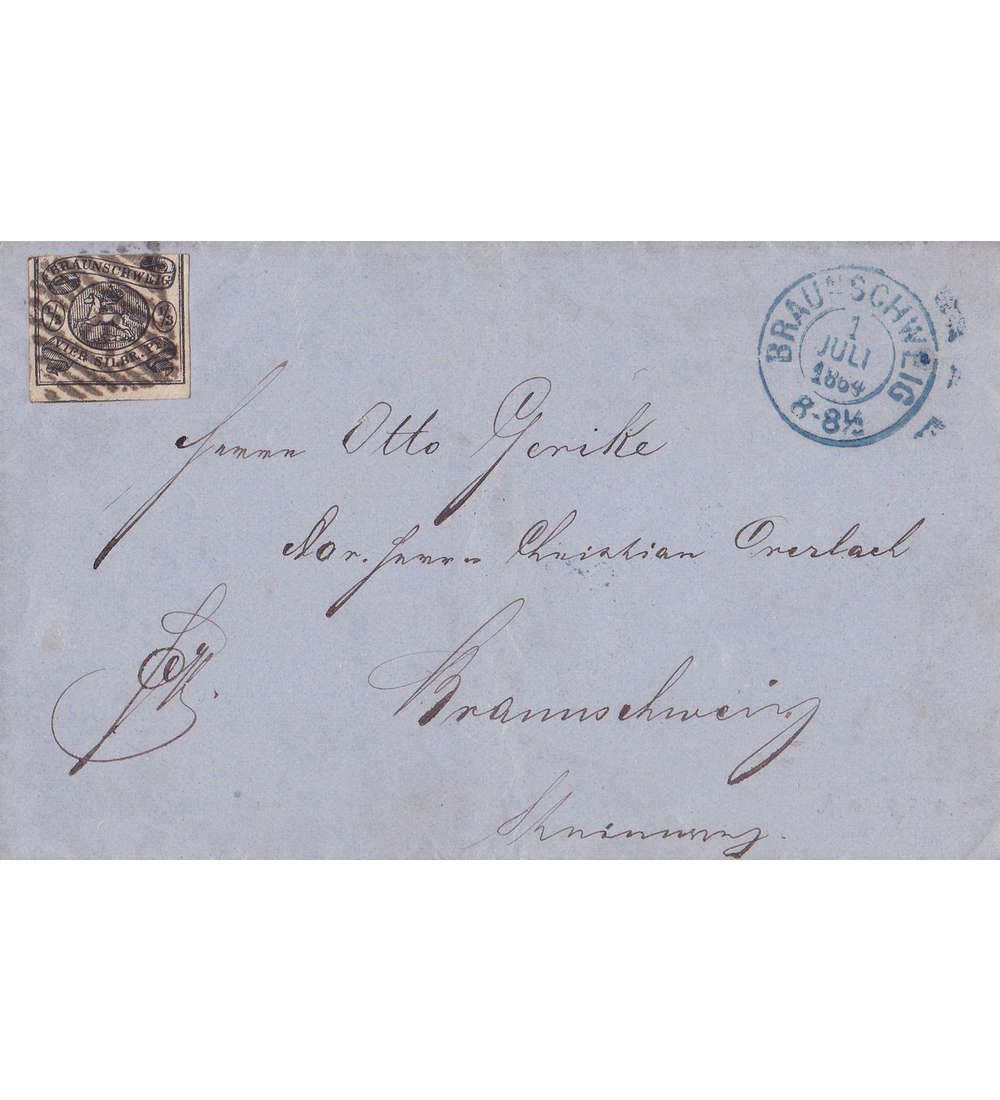 BRAUNSCHWEIG
1/3 1/3
SILBR.
BRAUNSCHWEIG
1
JULI
1864
8-8½
Herrn Otto Gerike
Adr. Herrn Christian Overlach
Braunschweig
Steinweg.